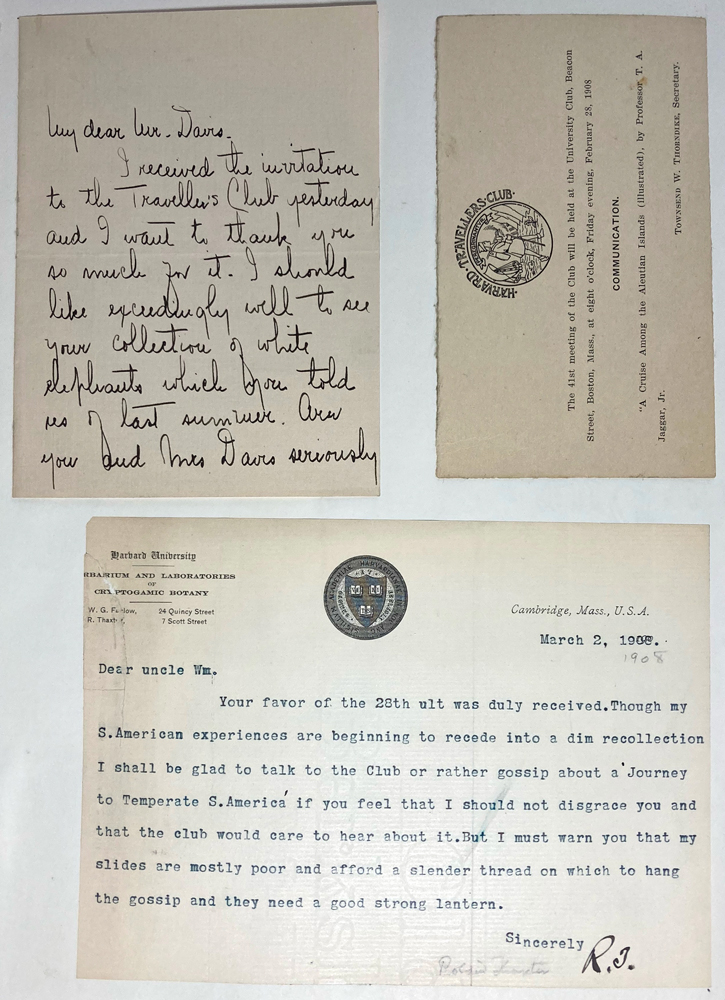 My dear Mr. Davis.
I received the invitation
to the Traveller's Club yesterday
and I want to thank you
so much for it. I should
like exceedingly well to see
your collection of white
elephants which you told
us of last summer. Are
you and Mrs Davis seriously
HARVARD·TRAVELLERS·CLUB·
The 41st meeting of the Club will be held at the University Club, Beacon
Street, Boston, Mass., at eight o'clock, Friday evening, February 28, 1908
COMMUNICATION.
"A Cruise Among the Aleutian Islands (illustrated), by Professor T. A.
Jaggar, Jr.
TOWNSEND W. THORNDIKE, Secretary.
Harvard University
RBARIUM AND LABORATORIES
OF
CRYPTOGAMIC BOTANY
W. G. Farlow, 24 Quincy Street
R. Thaxter, 7 Scott Street
Cambridge, Mass., U.S.A.
March 2, 1908.
1908
Dear uncle Wm.
Your favor of the 28th ult was duly received.Though my
S.American experiences are beginning to recede into a dim recollection
I shall be glad to talk to the Club or rather gossip about a'Journey
to Temperate S.America' if you feel that I should not disgrace you and
that the club would care to hear about it.But I must warn you that my
slides are mostly poor and afford a slender thread on which to hang
the gossip and they need a good strong lantern.
Sincerely R.T.
Thaxter